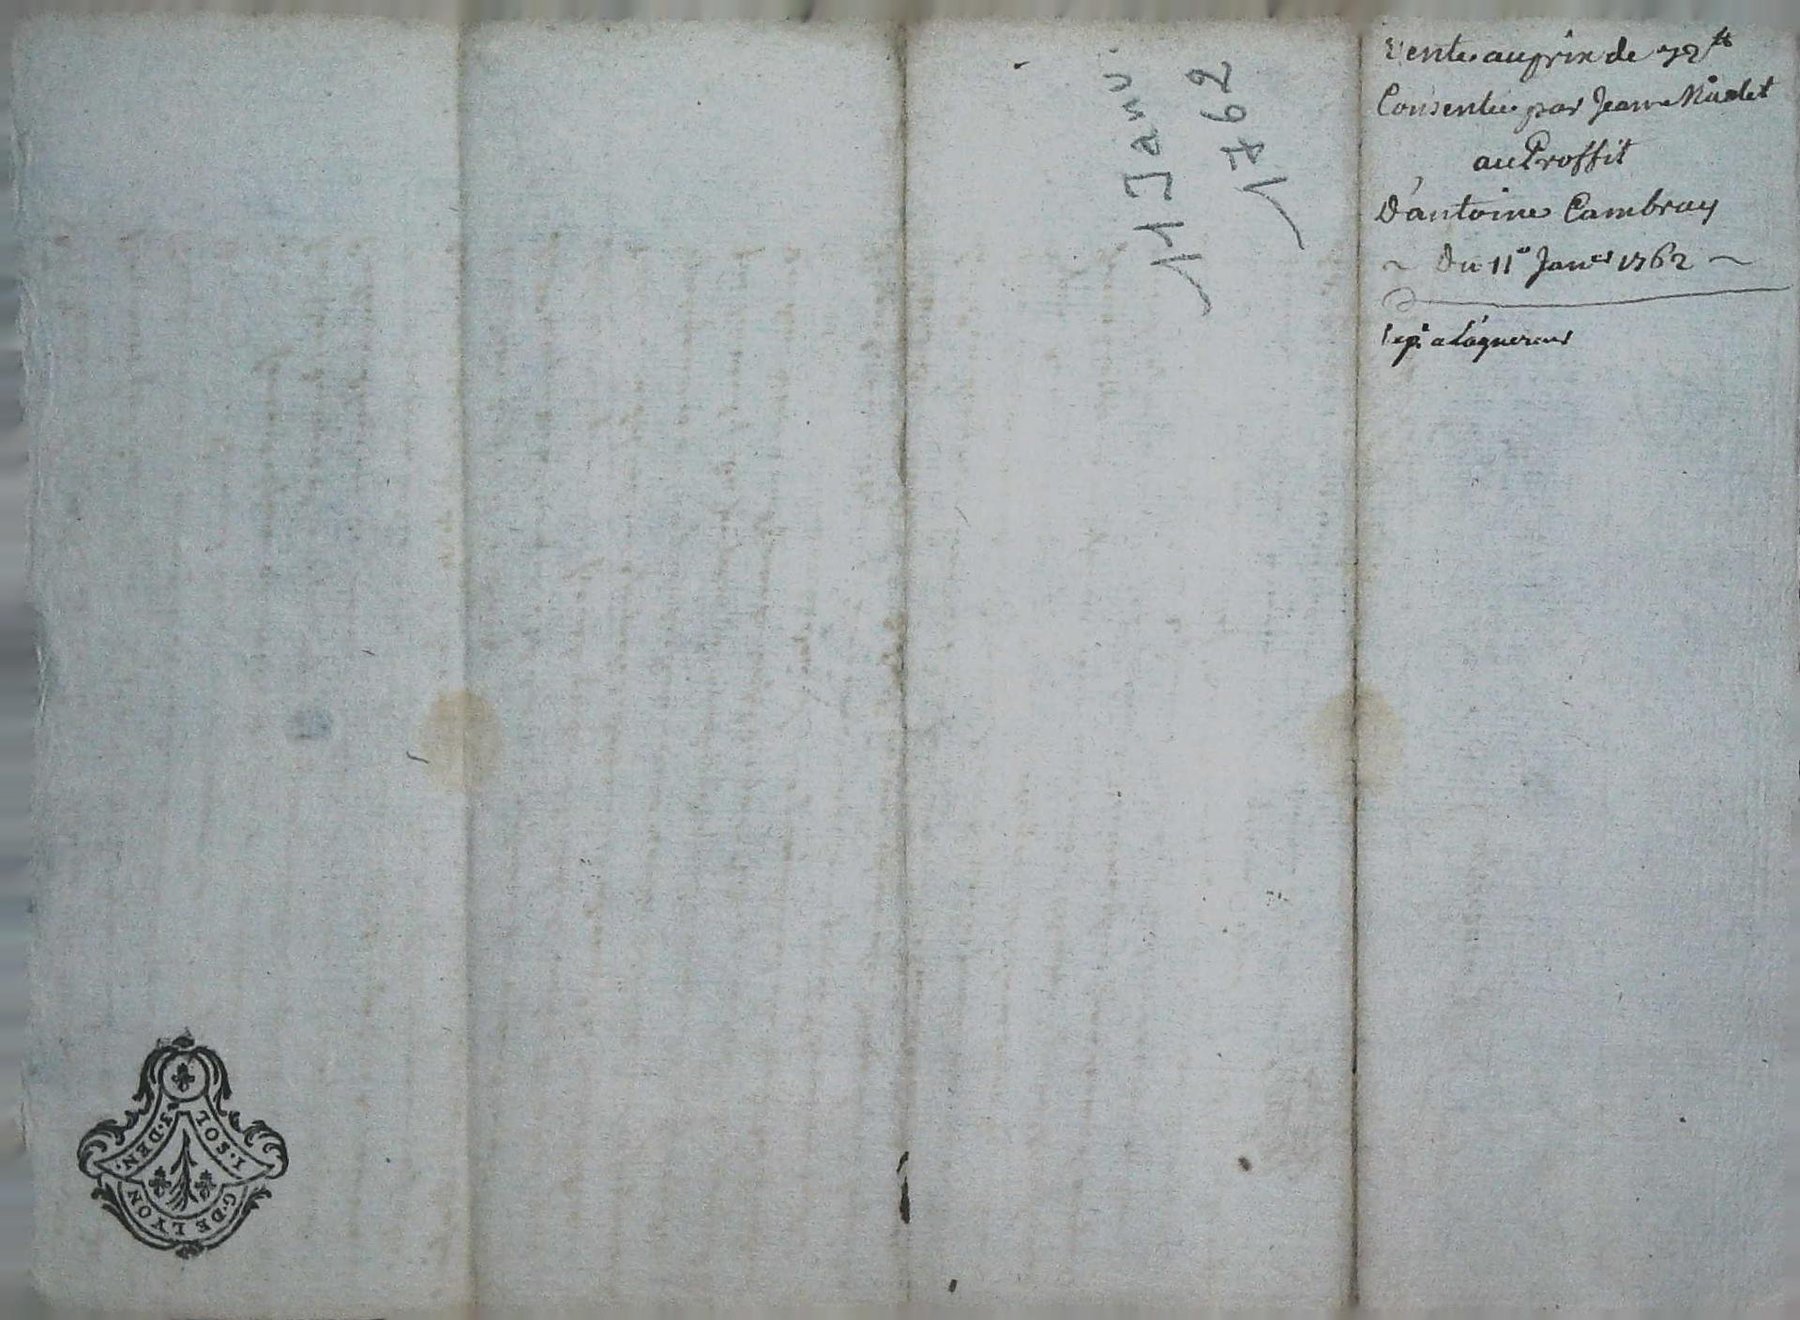 Vente au prix de 72 ₶
Consentie par Jean Nardet
au Proffit
D'antoine Cambray
~ Du 11e Janer 1762 ~
11 Janv.
1762
1. SOL
3. DEN.
G. DE LYON